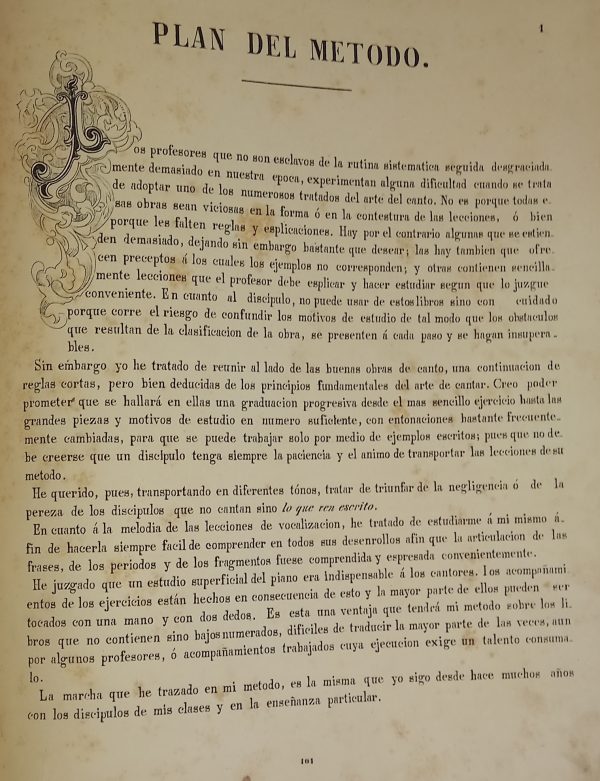 1
PLAN DEL METODO.
Los profesores que no son esclavos de la rutina sistematica seguida desgraciada_
mente demasiado en nuestra epoca, experimentan alguna dificultad cuando se trata
de adoptar uno de los numerosos tratados del arte del canto. No es porque todas e_
sas obras sean viciosas en la forma ó en la contestura de las lecciones, ó bien
porque les falten reglas y esplicaciones. Hay por el contrario algunas que se estien_
den demasiado, dejando sin embargo bastante que desear; las hay tambien que ofre_
cen preceptos á los cuales los ejemplos no corresponden; y otras contienen sencilla_
mente lecciones que el profesor debe esplicar y hacer estudiar segun que lo juzgue
conveniente. En cuanto al discipulo, no puede usar de estos libros sino con cuidado
porque corre el riesgo de confundir los motivos de estudio de tal modo que los obstaculos
que resultan de la clasificacion de la obra, se presenten á cada paso y se hagan insupera_
bles.
Sin embargo yo he tratado de reunir al lado de las buenas obras de canto, una continuacion de
reglas cortas, pero bien deducidas de los principios fundamentales del arte de cantar. Creo poder
prometer que se hallará en ellas una graduacion progresiva desde el mas sencillo ejercicio hasta las
grandes piezas y motivos de estudio en numero suficiente, con entonaciones bastante frecuente_
mente cambiadas, para que se puede trabajar solo por medio de ejemplos escritos; pues que no de_
be creerse que un discipulo tenga siempre la paciencia y el animo de transportar las lecciones de su
metodo.
He querido, pues, transportando en diferentes tónos, tratar de triunfar de la negligencia ó de la
pereza de los discipulos que no cantan sino lo que ven escrito.
En cuanto á la melodia de las lecciones de vocalizacion, he tratado de estudiarme á mi mismo á_
fin de hacerla siempre facil de comprender en todos sus desenrollos afin que la articulacion de las
frases, de los periodos y de los fragmentos fuese comprendida y espresada convenientemente.
He juzgado que un estudio superficial del piano era indispensable á los cantores. Los acompañami_
entos de los ejercicios están hechos en consecuencia de esto y la mayor parte de ellos pueden ser
tocados con una mano y con dos dedos. Es esta una ventaja que tendrá mi metodo sobre los li_
bros que no contienen sino bajos numerados, dificiles de traducir la mayor parte de las veces, aun
por algunos profesores, ó acompañamientos trabajados cuya ejecucion exige un talento consuma_
lo.
La marcha que he trazado en mi metodo, es la misma que yo sigo desde hace muchos años
con los discipulos de mis clases y en la enseñanza particular.
101